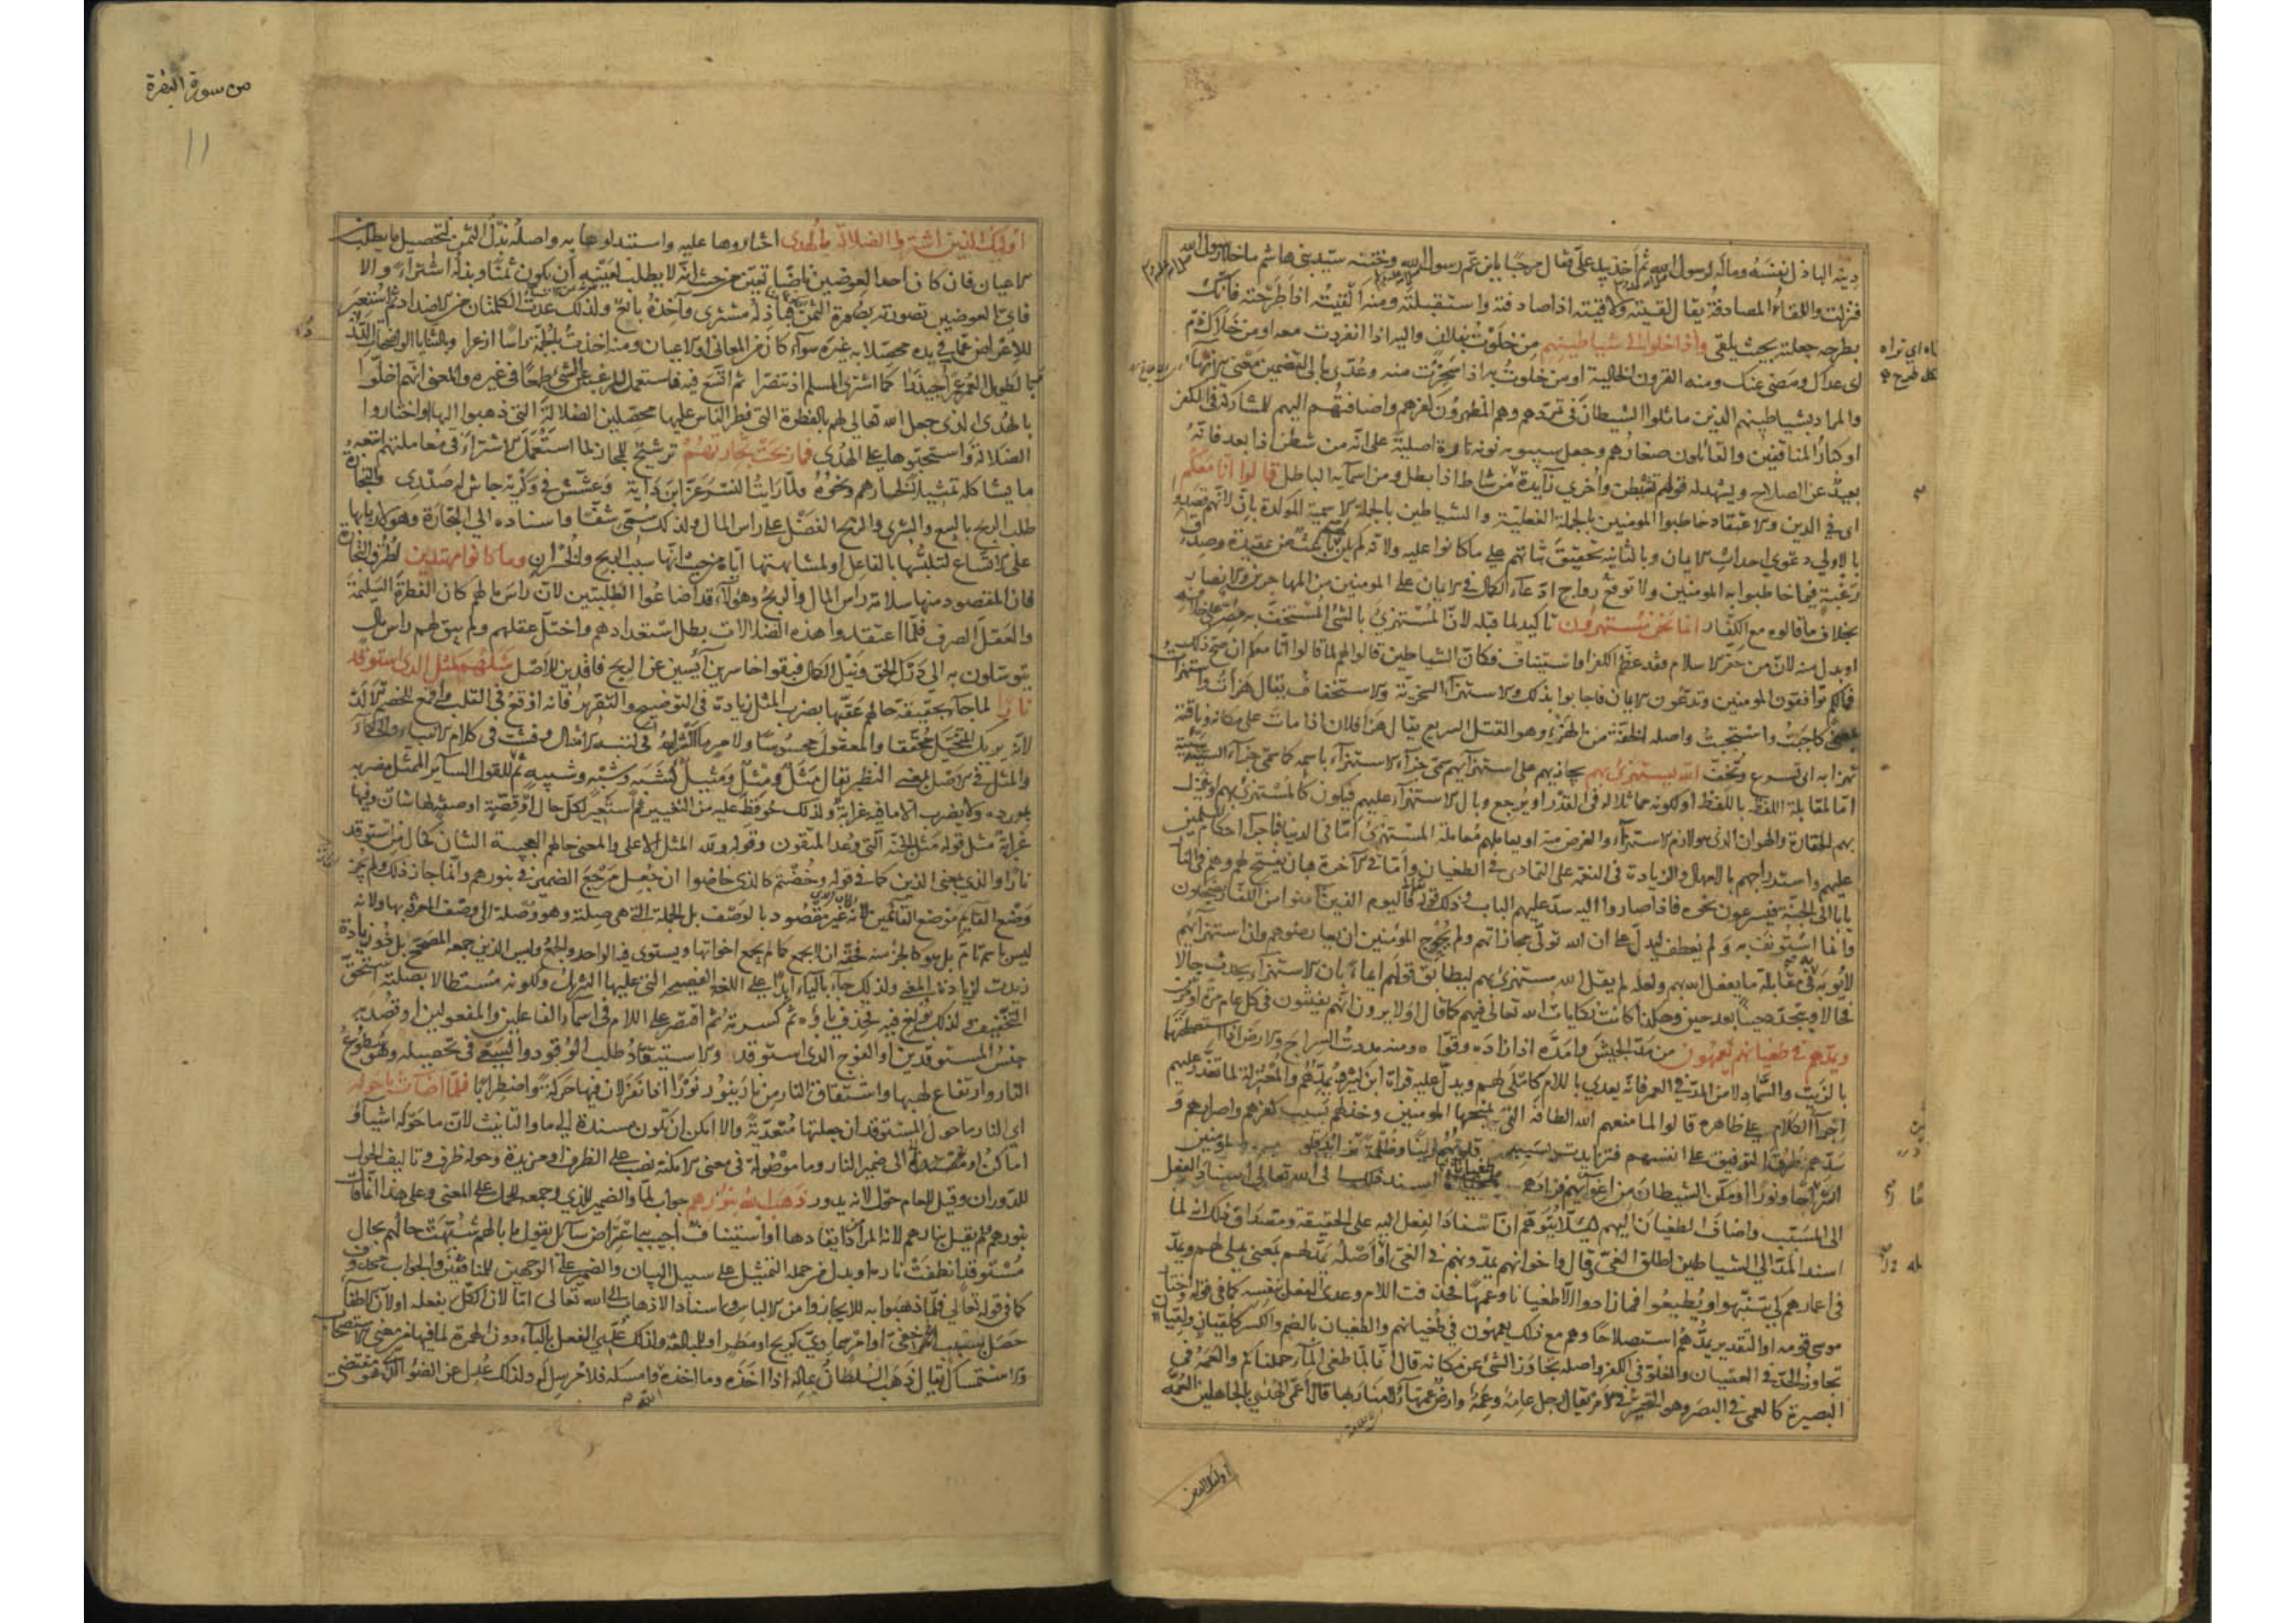 دينه الباذل نفسه وماله لرسول الله ثم أخذ بيد علي فقال مرحبا بابن عم رسول الله وختنه سيد بني هاشم ما خلا رسول الله
فنزلت واللقاء المصادفة يقال لقيته ولاقيته اذا صادفته واستقبلته ومنه القيته اذا طرحته فانك
بطرحه جعلته بحيث يلقى واذا خلوا الى شياطينهم من خلوت بفلان واليه اذا انفردت معه او من خلاك ذم
اى عداك ومضى عنك ومنه القرون الخالية او من خلوت به اذا سخرت منه وعدي بالى لتضمين معنى الانهاء
والمراد بشياطينهم الذين ماثلوا الشيطان في تمردهم وهم المظهرون كفرهم واضافتهم اليهم للمشاركة في الكفر
او كبار المنافقين والقائلون صغارهم وجعل سيبويه نونه تارة اصلية على انه من شطن اذا بعد فانه
بعيد عن الصلاح ويشهد له قولهم تشيطن واخرى زايدة من شاط اذا بطل ومن اسمايه الباطل قالوا انا معكم
اى في الدين والاعتقاد خاطبوا المومنين بالجملة الفعلية والشياطين بالجملة الاسمية الموكدة بان لانهم قصدوا
بالاولى دعوى احداث الايمان وبالثانية تحقيق ثباتهم على ما كانوا عليه ولانه لم يكن باعث من عقيدة وصدق
رغبة فيما خاطبوا به المومنين ولا توقع رواج ادعاء الكمال في الايمان على المومنين من المهاجرين والانصار
بخلاف ما قالوه مع الكفار انما نحن مستهزؤن تاكيد لما قبله لان المستهزئ بالشئ المستخف به مصر على خلافه
او بدل منه لان من حقر الاسلام فقد عظم الكفر او استيناف فكان الشياطين قالوا لهم لما قالوا انا معكم ان صح ذلك
فمالكم توافقون المومنين وتدعون الايمان فاجابوا بذلك والاستهزاء السخرية والاستخفاف يقال هزأت واستهزأت
بمعنى كاجبت واستجبت واصله الخفة من الهزء وهو القتل السريع يقال هزأ فلان اذا مات على مكانه وناقته
تهزا به اى تسرع وتخف الله يستهزئ بهم يجازيهم على استهزايهم سمى جزاء الاستهزاء باسمه كما سمى جزاء السيئة سيئة
اما لمقابلة اللفظ باللفظ او لكونه مماثلا له في القدر او يرجع وبال الاستهزاء عليهم فيكون كالمستهزئ بهم او ينزل
بهم الحقارة والهوان الذى هو لازم الاستهزاء والغرض منه او يعاملهم معاملة المستهزئ اما في الدنيا فباجراء احكام المسلمين
عليهم واستدراجهم بالامهال والزيادة في النعمة على التمادى في الطغيان واما في الآخرة فبان يفتح لهم وهم في النار
بابا الى الجنة فيسرعون نحوه فاذا صاروا اليه سد عليهم الباب وذلك قوله فاليوم الذين آمنوا من الكفار يضحكون
وانما استونف به ولم يعطف ليدل على ان الله تولى مجازاتهم ولم يحوج المؤمنين ان يعارضوهم وان استهزائهم
لا يؤبه في مقابلة ما يفعل الله بهم ولعله لم يقل الله مستهزئ بهم ليطابق قولهم ايماء بان الاستهزاء يحدث حالا
فحالا ويتجدد حينا بعد حين وهكذا كانت نكايات الله تعالى فيهم كما قال اولا يرون انهم يفتنون في كل عام مرة او مرتين
ويمدهم في طغيانهم يعمهون من مد الجيش وامده اذا زاده وقواه ومنه مددت السراج والارض اذا استصلحتهما
بالزيت والسماد لا من المد في العمر فانه يعدى باللام كاملى لهم ويدل عليه قراءة ابن كثير ويمدهم والمعتزلة لما تعذر عليهم
اجراء الكلام على ظاهره قالوا لما منعهم الله الطافه التى يمنحها المومنين وخذلهم بسبب كفرهم واصرارهم و
سدهم طرق التوفيق على انفسهم فتزايدت بسببه قلوبهم رينا وظلمة تزايد قلوب المؤمنين
انشراحا ونورا او مكن الشيطان من اغوائهم فزادهم طغيانا اسند ذلك الى الله تعالى اسناد الفعل
الى المسبب واضاف الطغيان اليهم لئلا يتوهم ان اسناد الفعل اليه على الحقيقة ومصداق ذلك انه لما
اسند المد الى الشياطين اطلق الغى وقال واخوانهم يمدونهم في الغى او اصله يمد لهم بمعنى يملى لهم ويمد
في اعمارهم كى يتنبهوا ويطيعوا فما زادوا الا طغيانا وعمها فحذفت اللام وعدى الفعل بنفسه كما في قوله واختار
موسى قومه او التقدير يمدهم استصلاحا وهم مع ذلك يعمهون في طغيانهم والطغيان بالضم والكسر كلقيان ولقيان
تجاوز الحد في العصيان والغلو في الكفر واصله تجاوز الشئ عن مكانه قال انا لما طغى الماء حملناكم والعمه في
البصيرة كالعمى في البصر وهو التحير في الامر يقال رجل عامه وعمه وارض عمهاء لا منار بها قال اعمى الهدى بالجاهلين العمه
اولئك الذين
من سورة البقرة
١١
اولئك الذين اشتروا الضلالة بالهدى اختاروها عليه واستبدلوها به واصله بذل الثمن لتحصيل ما يطلب من
الاعيان فان كان احد العوضين ناضا تعين من حيث انه لا يطلب لعينه ان يكون ثمنا وبذله اشتراء والا
فاى العوضين تصورته بصورة الثمن فباذله مشترى وآخذه بائع ولذلك عدت الكلمتان من الاضداد ثم استعير
للاعراض عما في يده محصلا به غيره سواء كان من المعانى او الاعيان ومنه اخذت بالجمة راسا ازعرا وبالثنايا الواضحات الدردرا
وبالطويل العمر عمرا جيذرا كما اشترى المسلم اذ تنصرا ثم اتسع فيه فاستعمل للرغبة عن الشئ طمعا في غيره والمعنى انهم اخلوا
بالهدى الذى جعل الله تعالى لهم بالفطرة التى فطر الناس عليها محصلين الضلالة التى ذهبوا اليها او اختاروا
الضلالة واستحبوها على الهدى فما ربحت تجارتهم ترشيح للمجاز لما استعمل الاشتراء في معاملتهم اتبعه
ما يشاكله تمثيلا لخسارهم ونحوه ولما رايت النسر عز ابن داية وعشش في وكريه جاش له صدرى والتجارة
طلب الربح بالبيع والشرى والربح الفضل على راس المال ولذلك سمى شفا واسناده الى التجارة وهو لاربابها
على الاتساع لتلبسها بالفاعل او لمشابهتها اياه من حيث انها سبب الربح والخسران وما كانوا مهتدين لطرق التجارة
فان المقصود منها سلامة راس المال والربح وهؤلاء قد اضاعوا الطلبتين لان راس مالهم كان الفطرة السليمة
والعقل الصرف فلما اعتقدوا هذه الضلالات بطل استعدادهم واختل عقلهم ولم يبق لهم راس مال
يتوسلون به الى درك الحق ونيل الكمال فبقوا خاسرين آيسين عن الربح فاقدين للاصل مثلهم كمثل الذى استوقد
نارا لما جاء بحقيقة حالهم عقبها بضرب المثل زيادة في التوضيح والتقرير فانه اوقع في القلب واقمع للخصم الالد
لانه يريك المتخيل محققا والمعقول محسوسا ولامر ما اكثر الله في كتبه الامثال وفشت في كلام الانبياء والحكماء
والمثل في الاصل بمعنى النظير يقال مثل ومثل ومثيل كشبه وشبه وشبيه ثم للقول الساير الممثل مضربه
بمورده ولا يضرب الا ما فيه غرابة ولذلك حوفظ عليه من التغيير ثم استعير لكل حال او قصة او صفة لها شان وفيها
غرابة مثل قوله مثل الجنة التى وعد المتقون وقوله ولله المثل الاعلى والمعنى حالهم العجيبة الشان كحال من استوقد
نارا والذى بمعنى الذين كما في قوله وخضتم كالذى خاضوا ان جعل مرجع الضمير في بنورهم وانما جاز ذلك ولم يجز
وضع القايم موضع القائمين لانه غير مقصود بالوصف بل الجملة التى هى صلته وهو وصلة الى وصف المعرفة بها ولانه
ليس باسم تام بل هو كالجزء منه فحقه ان لا يجمع كما لم يجمع اخواتها ويستوى فيه الواحد والجمع وليس الذين جمعه المصحح بل ذو زيادة
زيدت لزيادة المعنى ولذلك جاء بالياء ابدا على اللغة الفصيحة التى عليها التنزيل ولكونه مستطالا بصلته استحق
التخفيف ولذلك بولغ فيه فحذف ياؤه ثم كسرته ثم اقتصر على اللام في اسماء الفاعلين والمفعولين او قصد به
جنس المستوقدين او الفوج الذى استوقد والاستيقاد طلب الوقود والسعى في تحصيله وهو سطوع
النار وارتفاع لهبها واشتقاق النار من نار ينور نورا اذا نفر لان فيها حركة واضطرابا فلما اضاءت ما حوله
اى النار ما حول المستوقد ان جعلتها متعدية والا امكن ان تكون مسندة الى ما والتانيث لان ما حوله اشياء و
اماكن او مسندة الى ضمير النار وما موصولة في معنى الامكنة نصب على الظرف او مزيدة وحوله ظرف وتاليف الحول
للدوران وقيل للعام حول لانه يدور ذهب الله بنورهم جواب لما والضمير للذى وجمعه للحمل على المعنى وعلى هذا انما قال
بنورهم ولم يقل بنارهم لانه المراد من ايقادها او استيناف اجيب به اعتراض سائل يقول ما بالهم شبهت حالهم بحال
مستوقد انطفت ناره او بدل من جملة التمثيل على سبيل البيان والضمير على الوجهين للمنافقين والجواب محذوف
كما في قوله تعالى فلما ذهبوا به للايجاز وامن الالباس واسناد الاذهاب الى الله تعالى اما لان الكل بفعله او لان الاطفاء
حصل بسبب خفى او امر سماوى كريح او مطر او للمبالغة ولذلك عدى الفعل بالباء دون الهمزة لما فيها من معنى الاستصحاب
والاستمساك يقال ذهب السلطان بماله اذا اخذه وما اخذه الله وامسكه فلا مرسل له ولذلك عدل عن الضوء الذى هو مقتضى